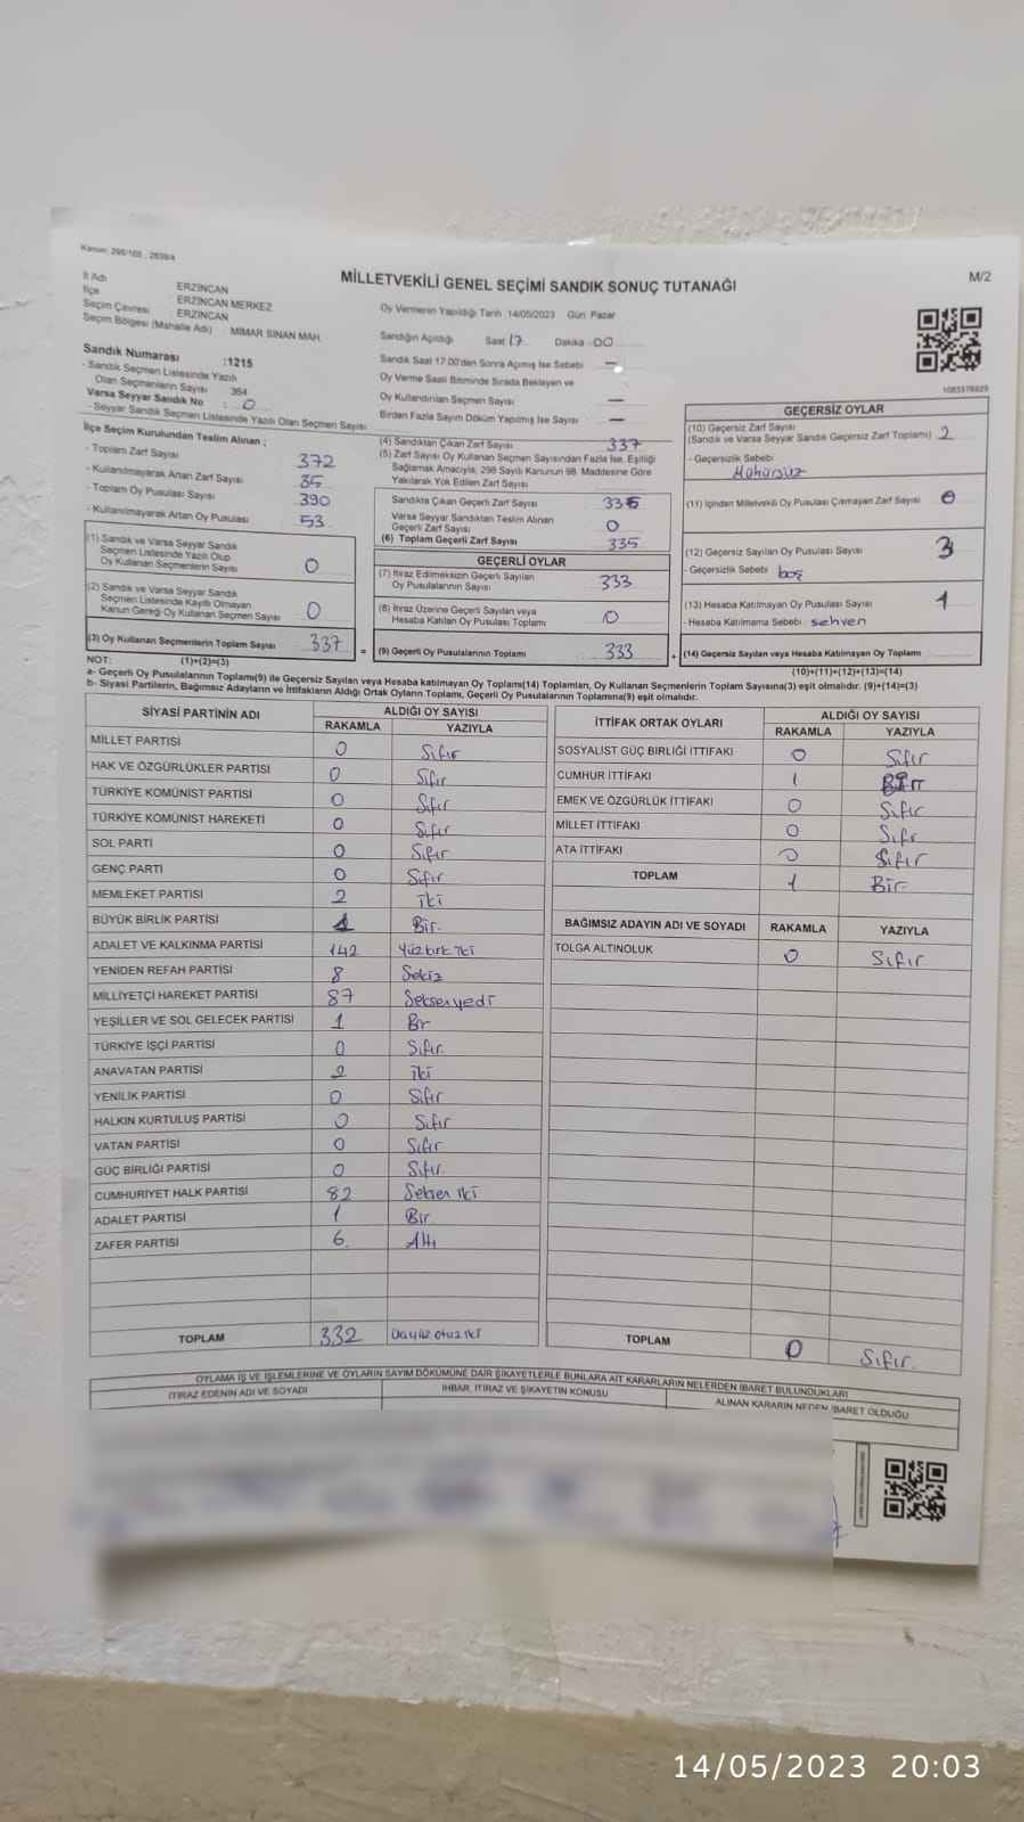 Kanun: 298/105, 2839/4
MİLLETVEKİLİ GENEL SEÇİMİ SANDIK SONUÇ TUTANAĞI
M/2
İl Adı ERZİNCAN
İlçe ERZİNCAN MERKEZ
Seçim Çevresi ERZİNCAN
Seçim Bölgesi (Mahalle Adı) MİMAR SİNAN MAH.
Sandık Numarası :1215
- Sandık Seçmen Listesinde Yazılı
Olan Seçmenlerin Sayısı 364
Varsa Seyyar Sandık No : 0
- Seyyar Sandık Seçmen Listesinde Yazılı Olan Seçmen Sayısı
İlçe Seçim Kurulundan Teslim Alınan :
- Toplam Zarf Sayısı 372
- Kullanılmayarak Artan Zarf Sayısı 35
- Toplam Oy Pusulası Sayısı 390
- Kullanılmayarak Artan Oy Pusulası 53
(1) Sandık ve Varsa Seyyar Sandık
Seçmen Listesinde Yazılı Olup
Oy Kullanan Seçmenlerin Sayısı 0
(2) Sandık ve Varsa Seyyar Sandık
Seçmen Listesinde Kayıtlı Olmayan
Kanun Gereği Oy Kullanan Seçmen Sayısı 0
(3) Oy Kullanan Seçmenlerin Toplam Sayısı 337
(1)+(2)=(3)
Oy Vermenin Yapıldığı Tarih 14/05/2023 Gün Pazar
Sandığın Açıldığı Saat 17 Dakika 00
Sandık Saat 17.00'den Sonra Açılmış İse Sebebi —
Oy Verme Saati Bitiminde Sırada Bekleyen ve
Oy Kullandırılan Seçmen Sayısı —
Birden Fazla Sayım Döküm Yapılmış İse Sayısı —
(4) Sandıktan Çıkan Zarf Sayısı 337
(5) Zarf Sayısı Oy Kullanan Seçmen Sayısından Fazla İse, Eşitliği
Sağlamak Amacıyla, 298 Sayılı Kanunun 98. Maddesine Göre
Yakılarak Yok Edilen Zarf Sayısı
Sandıkta Çıkan Geçerli Zarf Sayısı 335
Varsa Seyyar Sandıktan Teslim Alınan
Geçerli Zarf Sayısı 0
(6) Toplam Geçerli Zarf Sayısı 335
GEÇERLİ OYLAR
(7) İtiraz Edilmeksizin Geçerli Sayılan
Oy Pusulalarının Sayısı 333
(8) İtiraz Üzerine Geçerli Sayılan veya
Hesaba Katılan Oy Pusulası Toplamı 0
= (9) Geçerli Oy Pusulalarının Toplamı 333
GEÇERSİZ OYLAR
(10) Geçersiz Zarf Sayısı
(Sandık ve Varsa Seyyar Sandık Geçersiz Zarf Toplamı) 2
- Geçersizlik Sebebi
Mühürsüz
(11) İçinden Milletvekili Oy Pusulası Çıkmayan Zarf Sayısı 0
(12) Geçersiz Sayılan Oy Pusulası Sayısı 3
- Geçersizlik Sebebi boş
(13) Hesaba Katılmayan Oy Pusulası Sayısı 1
- Hesaba Katılmama Sebebi sehven
+ (14) Geçersiz Sayılan veya Hesaba Katılmayan Oy Toplamı
(10)+(11)+(12)+(13)=(14)
NOT:
a- Geçerli Oy Pusulalarının Toplamı(9) ile Geçersiz Sayılan veya Hesaba katılmayan Oy Toplamı(14) Toplamları, Oy Kullanan Seçmenlerin Toplam Sayısına(3) eşit olmalıdır. (9)+(14)=(3)
b- Siyasi Partilerin, Bağımsız Adayların ve İttifakların Aldığı Ortak Oyların Toplamı, Geçerli Oy Pusulalarının Toplamına(9) eşit olmalıdır.
SİYASİ PARTİNİN ADI ALDIĞI OY SAYISI
RAKAMLA YAZIYLA
MİLLET PARTİSİ 0 Sıfır
HAK VE ÖZGÜRLÜKLER PARTİSİ 0 Sıfır
TÜRKİYE KOMÜNİST PARTİSİ 0 Sıfır
TÜRKİYE KOMÜNİST HAREKETİ 0 Sıfır
SOL PARTİ 0 Sıfır
GENÇ PARTİ 0 Sıfır
MEMLEKET PARTİSİ 2 iki
BÜYÜK BİRLİK PARTİSİ 1 Bir
ADALET VE KALKINMA PARTİSİ 142 Yüzkırk iki
YENİDEN REFAH PARTİSİ 8 Sekiz
MİLLİYETÇİ HAREKET PARTİSİ 87 Seksenyedi
YEŞİLLER VE SOL GELECEK PARTİSİ 1 Bir
TÜRKİYE İŞÇİ PARTİSİ 0 Sıfır
ANAVATAN PARTİSİ 2 iki
YENİLİK PARTİSİ 0 Sıfır
HALKIN KURTULUŞ PARTİSİ 0 Sıfır
VATAN PARTİSİ 0 Sıfır
GÜÇ BİRLİĞİ PARTİSİ 0 Sıfır
CUMHURİYET HALK PARTİSİ 82 Seksen iki
ADALET PARTİSİ 1 Bir
ZAFER PARTİSİ 6 Altı
TOPLAM 332 Üçyüz otuz iki
İTTİFAK ORTAK OYLARI ALDIĞI OY SAYISI
RAKAMLA YAZIYLA
SOSYALİST GÜÇ BİRLİĞİ İTTİFAKI 0 Sıfır
CUMHUR İTTİFAKI 1 Bir
EMEK VE ÖZGÜRLÜK İTTİFAKI 0 Sıfır
MİLLET İTTİFAKI 0 Sıfır
ATA İTTİFAKI 0 Sıfır
TOPLAM 1 Bir
BAĞIMSIZ ADAYIN ADI VE SOYADI RAKAMLA YAZIYLA
TOLGA ALTINOLUK 0 Sıfır
TOPLAM 0 Sıfır
OYLAMA İŞ VE İŞLEMLERİNE VE OYLARIN SAYIM DÖKÜMÜNE DAİR ŞİKAYETLERLE BUNLARA AİT KARARLARIN NELERDEN İBARET BULUNDUKLARI
İTİRAZ EDENİN ADI VE SOYADI İHBAR, İTİRAZ VE ŞİKAYETİN KONUSU ALINAN KARARIN NEDEN İBARET OLDUĞU
14/05/2023 20:03